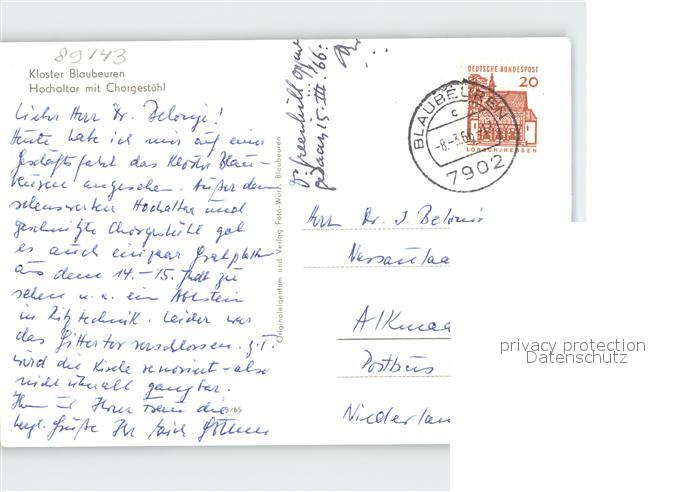 89143
Kloster Blaubeuren
Hochaltar mit Chorgestühl
Lieber Herr Dr. Belonje!
Heute habe ich mir auf einer
Geschäftsfahrt das Kloster Blau-
beuren angesehen. Außer dem
sehenswerten Hochaltar und
geschnitzte Chorgestühl gab
es auch ein paar Grabplatten
aus dem 14.-15. Jhdt zu
sehen u. a. ein
in Ritztechnik. Leider war
das Gittertor verschlossen. z.T.
wird die Kirche renoviert - also
nicht überall gangbar.
Ihnen u Ihrer Frau die
herzl. Grüße Ihr
9/65
Originaleigentum und Verlag Foto-Wörn, Blaubeuren
15-III-66:
DEUTSCHE BUNDESPOST
20
LORSCH/HESSEN
BLAUBEUREN
c
-8.-3.66
7902
Herrn Dr. J. Belonje
Nassaulaa
Alkmaa
Postbus
Niederlan
privacy protection
Datenschutz